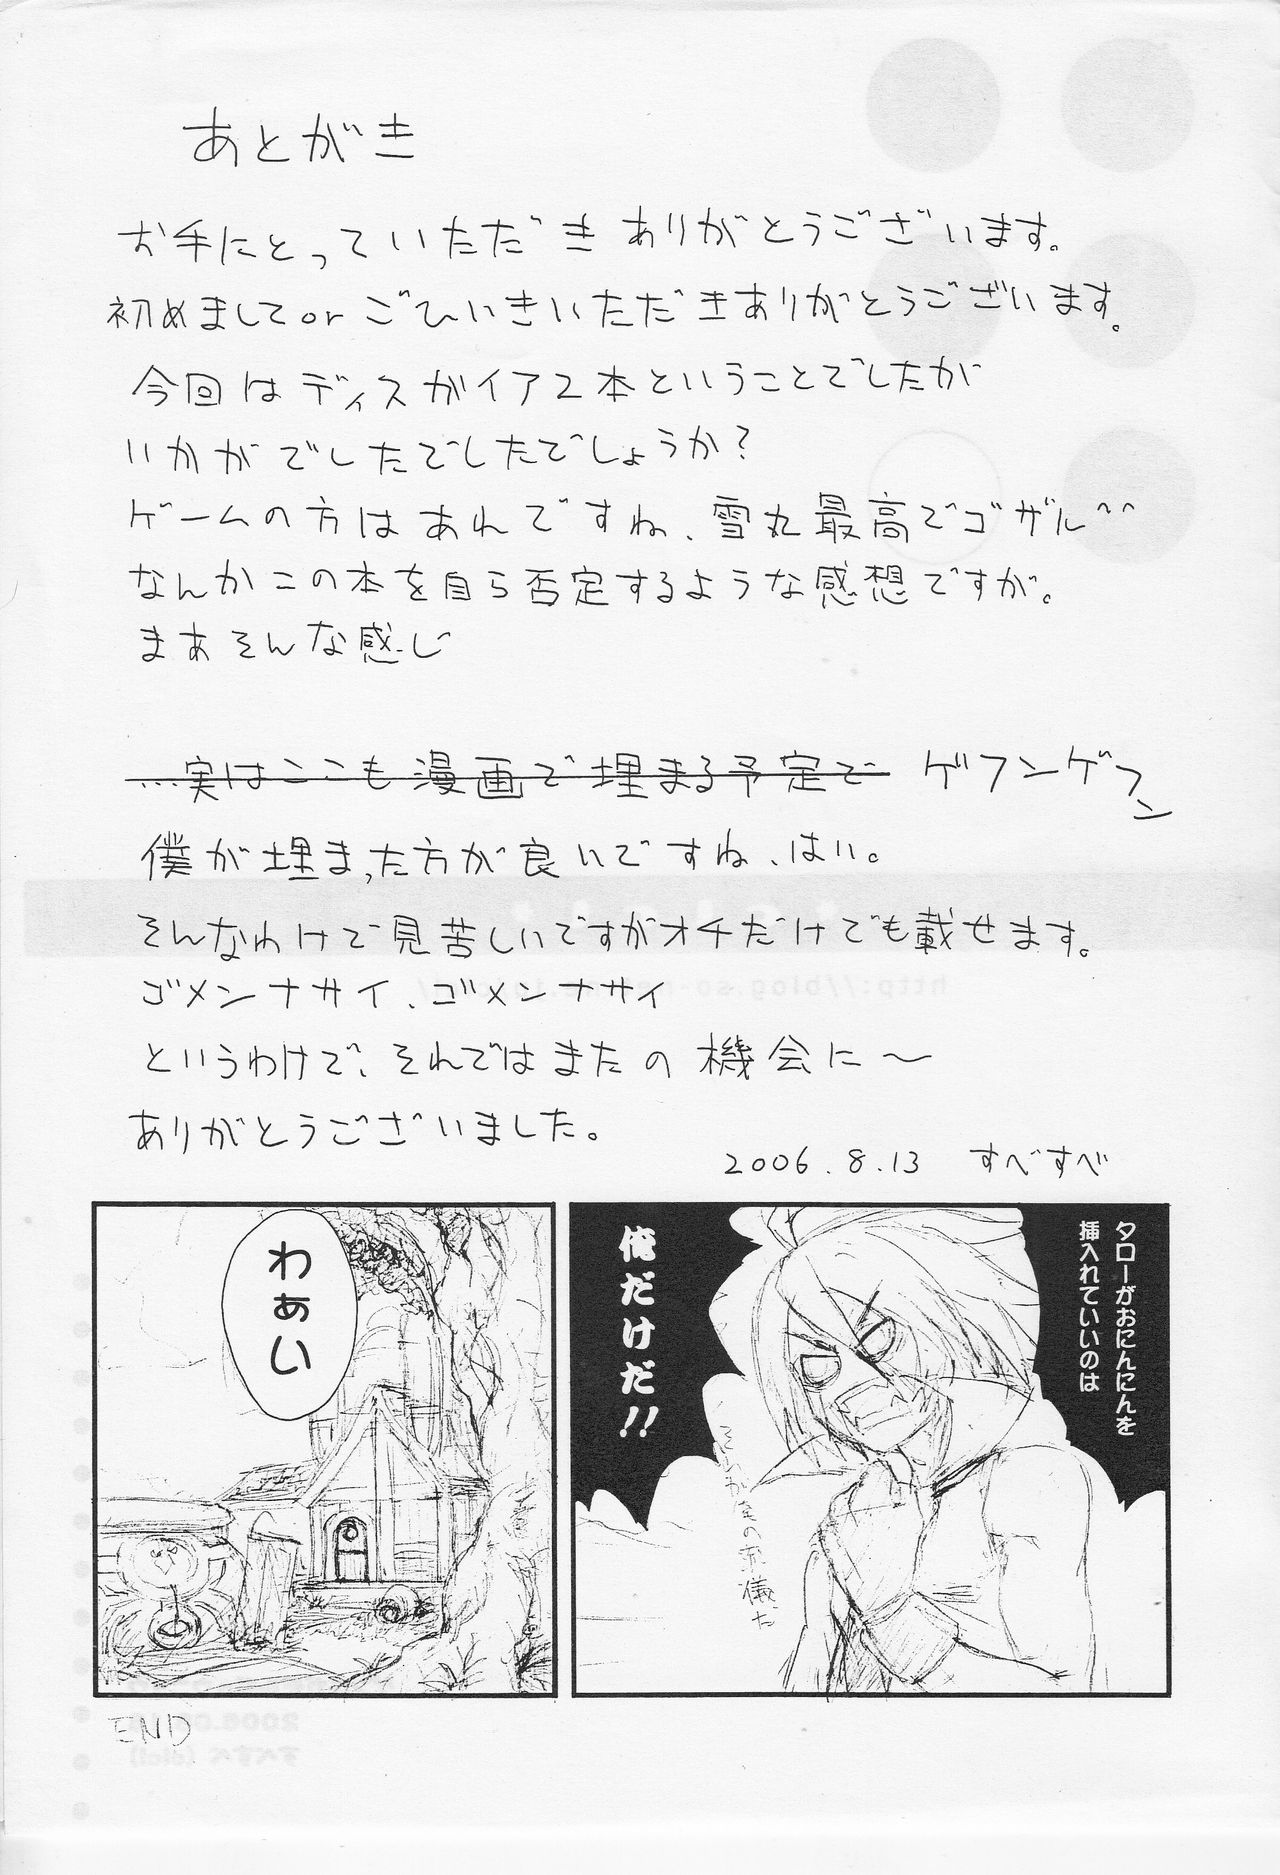 あとがき
お手にとっていただき ありがとうございます。
初めましてor ごひいきいただきありがとうございます。
今回は ディスガイア2本ということでしたが
いかがでしたでしたでしょうか?
ゲームの方はあれですね、雪丸最高でゴザル^^
なんかこの本を自ら否定するような感想ですが。
まあそんな感じ
…実はここも漫画で埋まる予定で ゲフンゲフン
僕が埋まった方が良いですね、はい。
そんなわけで見苦しいですがオチだけでも載せます。
ゴメンナサイ、ゴメンナサイ
というわけで、それではまたの機会に～
ありがとうございました。
2006.8.13 すべすべ
わぁい
END